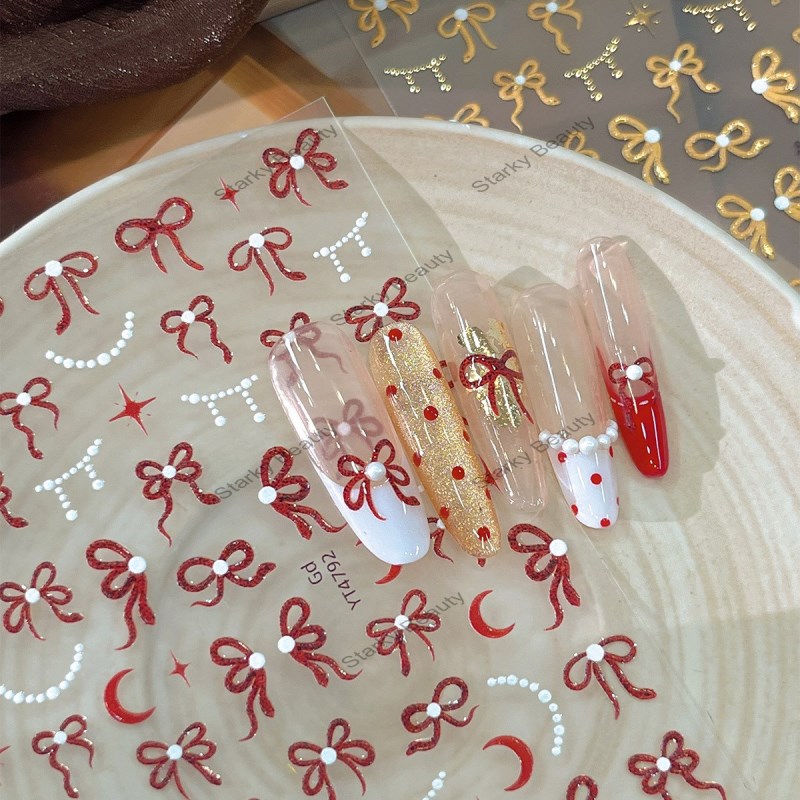 Starky Beauty
Starky Beauty
Starky Beauty
Starky Beauty
Starky Beauty
Starky Beauty
Gd
YT4792
Starky Beauty